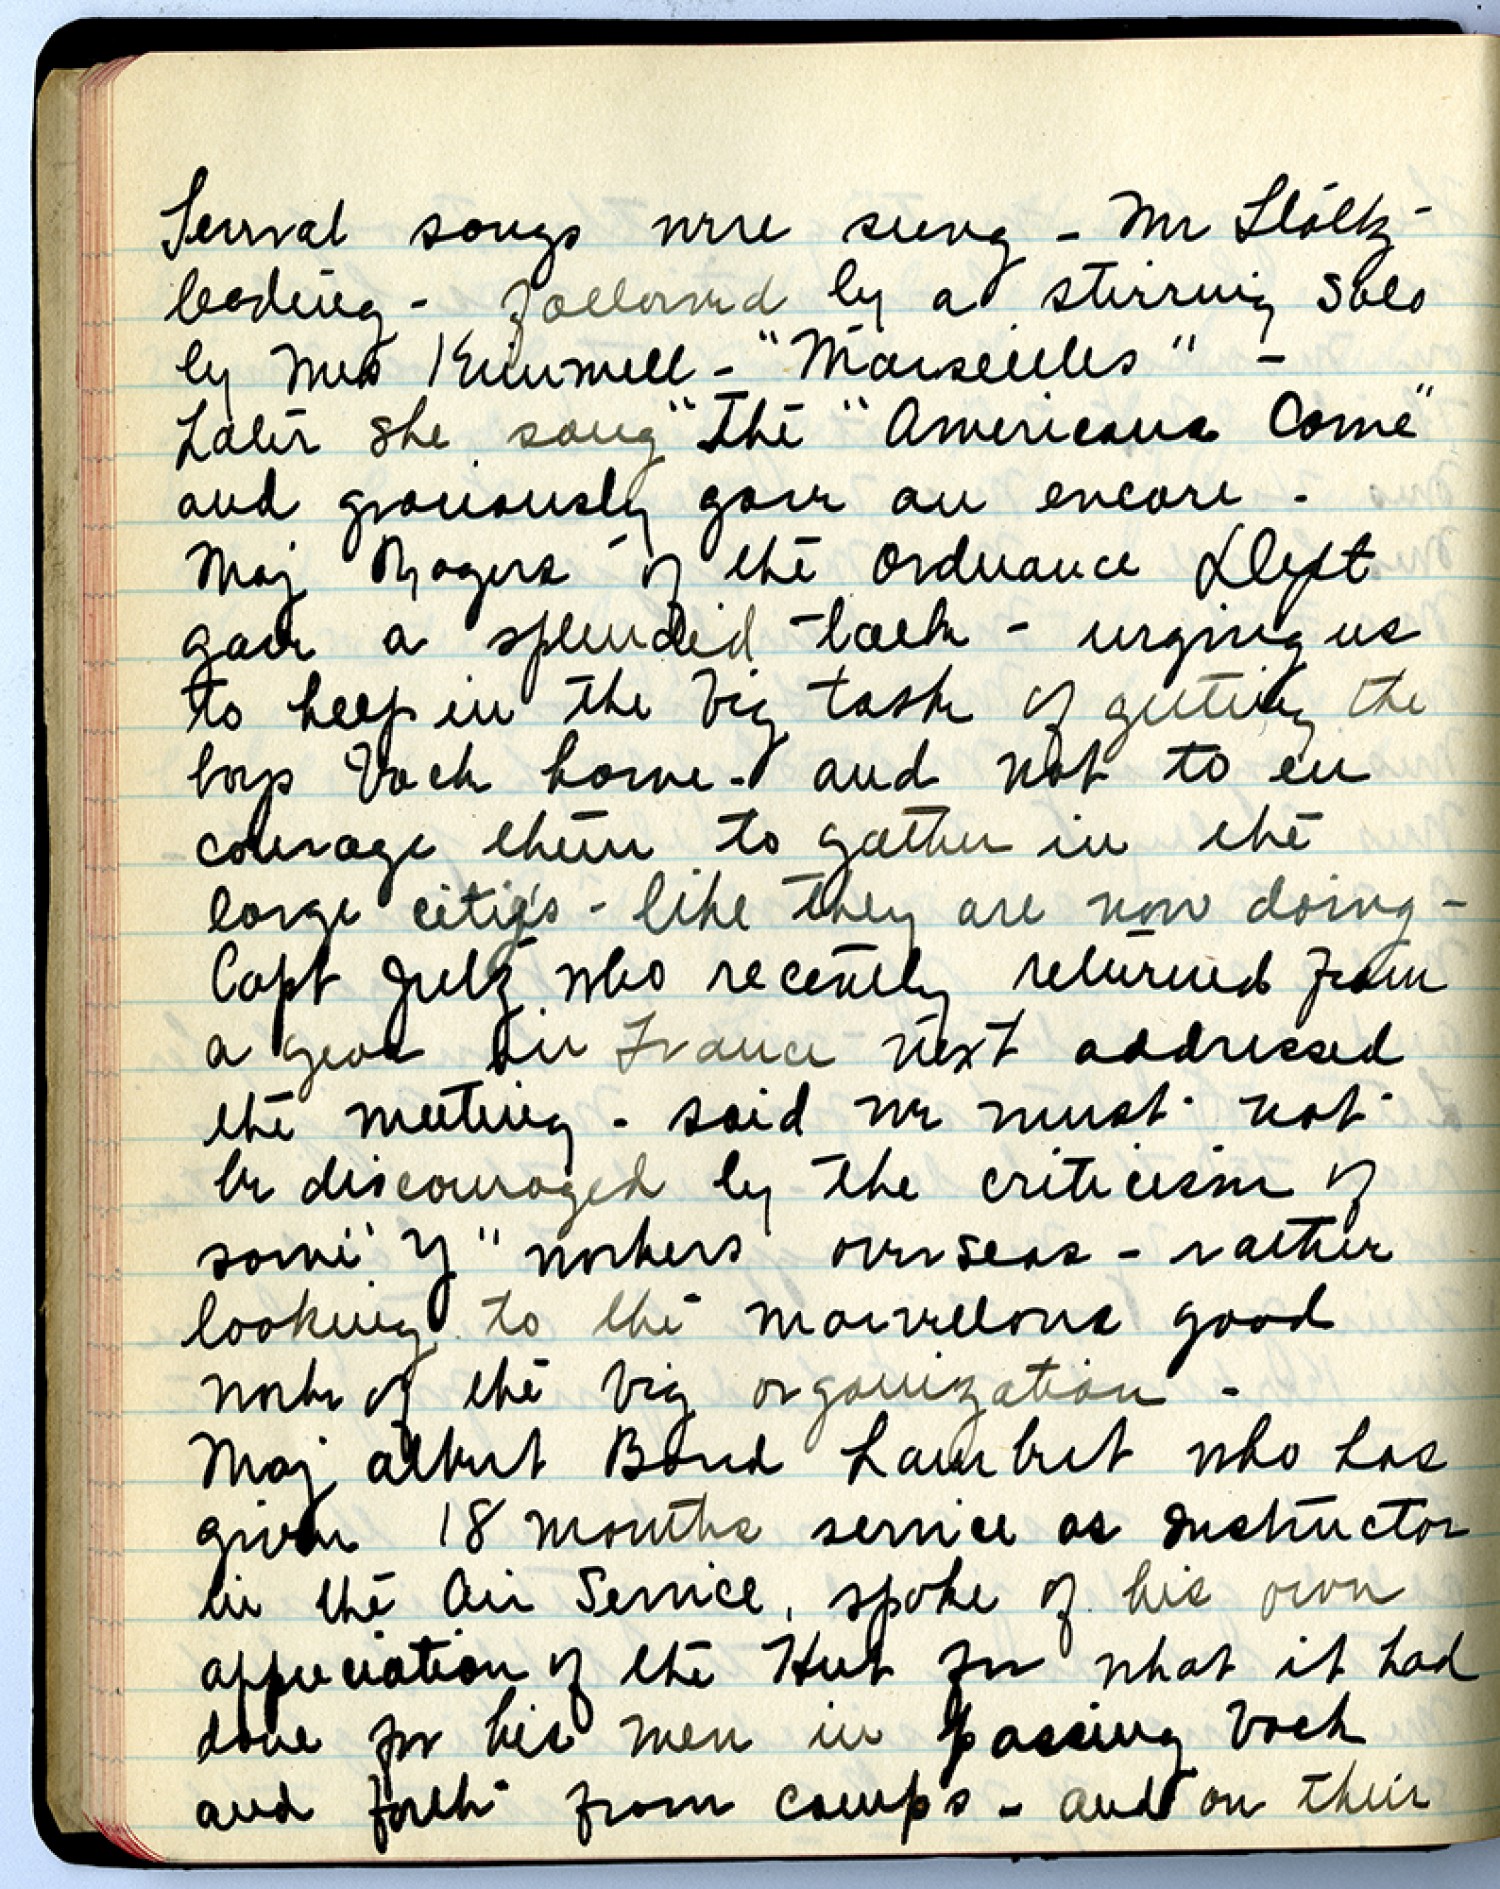 Several songs were sung - Mr Stoltz -
leading - followed by a stirring solo
by Mrs Kimmell - "Marseilles" -
Later she sang "The "Americans Come"
and graciously gave an encore -
Maj Rogers of the Ordnance Dept
gave a splendid talk - urging us
to help in the big task of getting the
boys back home - and not to en
courage them to gather in the
large cities - like they are now doing -
Capt who recently returned from
a year in France next addressed
the meeting - said we must not
be discouraged by the criticism of
some "Y" workers overseas - rather
looking to the marvellous good
work of the big organization -
Maj Albert Bond Lambert who has
given 18 months service as Instructor
in the Air Service, spoke of his own
appreciation of the Hut for what it had
done for his men in passing back
and forth from camps - and on their